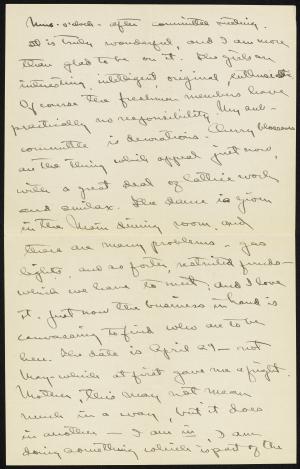 after committee meeting.
It is truly wonderful, and I am more
than glad to be on it. The girls are
interesting, intelligent, original, enthusiastic
Of course the freshman members have
practically no responsibility. My sub-
committee is decorations. Cherry blossoms
are the thing which appeal just now,
with a great deal of lattice work
and smilax. The dance is given
in the Main dining room, and
there are many problems - gas
lights, and so forth, restricted funds -
which we have to meet, and I love
it. Just now the business in hand is
canvassing to find who are to be
here. The date is April 29 - not
May - which at first gave me a fright.
Mother, this may not mean
much in a way, but it does
in another - I am in; I am
doing something which is part of the